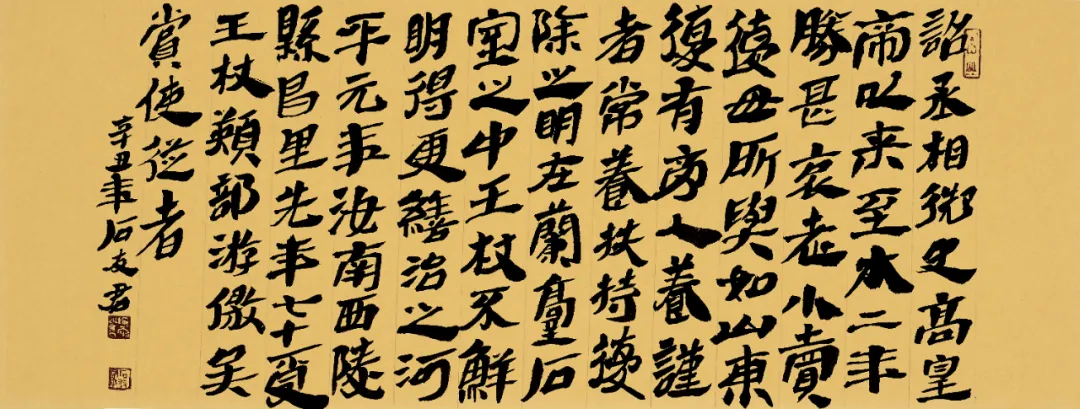 詔丞相御史高皇
帝以来至本二年
勝甚哀老小賣
復毋所與如山東
復有旁人養謹
者常養扶持復
除之明在蘭臺石
室之中王杖不鮮
明得更繕治之河
平元年汝南西陵
縣昌里先年七十受
王杖熲部游徼吴
賞使從者
辛丑年石友君